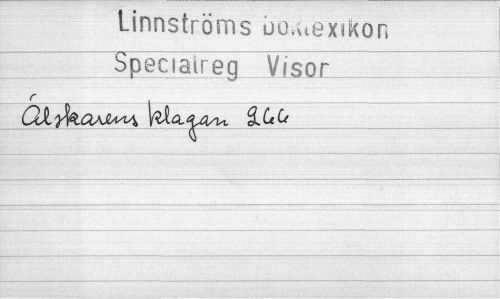 Linnströms boklexikon
Specialreg Visor
Älskarens klagan 266